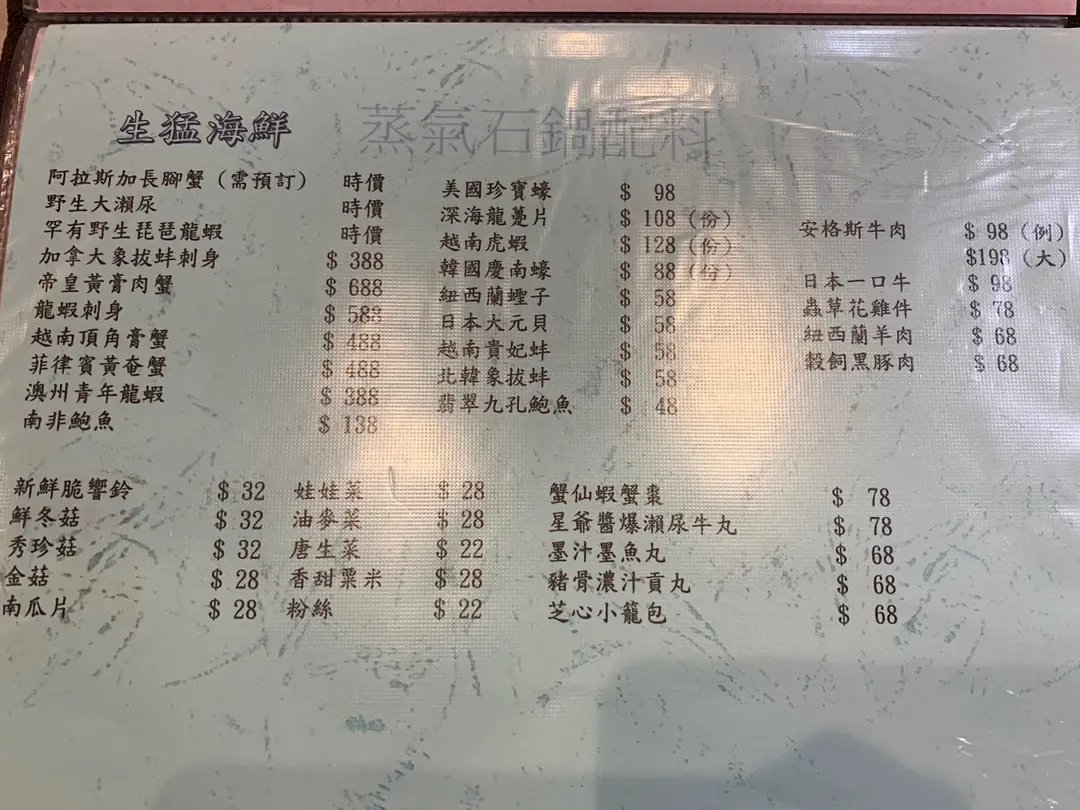 生猛海鮮
蒸氣石鍋配料
阿拉斯加長腳蟹 (需預訂) 時價
野生大瀨尿 時價
罕有野生琵琶龍蝦 時價
加拿大象拔蚌刺身 $ 388
帝皇黃膏肉蟹 $ 688
龍蝦刺身 $ 588
越南頂角膏蟹 $ 488
菲律賓黃奄蟹 $ 488
澳州青年龍蝦 $ 388
南非鮑魚 $ 138
美國珍寶蠔 $ 98
深海龍躉片 $ 108 (份)
越南虎蝦 $ 128 (份)
韓國慶南蠔 $ 88 (份)
紐西蘭蟶子 $ 58
日本大元貝 $ 58
越南貴妃蚌 $ 58
北韓象拔蚌 $ 58
翡翠九孔鮑魚 $ 48
安格斯牛肉 $ 98 (例)
$198 (大)
日本一口牛 $ 98
蟲草花雞件 $ 78
紐西蘭羊肉 $ 68
穀飼黑豚肉 $ 68
新鮮脆響鈴 $ 32
鮮冬菇 $ 32
秀珍菇 $ 32
金菇 $ 28
南瓜片 $ 28
娃娃菜 $ 28
油麥菜 $ 28
唐生菜 $ 22
香甜粟米 $ 28
粉絲 $ 22
蟹仙蝦蟹棗 $ 78
星爺醬爆瀨尿牛丸 $ 78
墨汁墨魚丸 $ 68
豬骨濃汁貢丸 $ 68
芝心小籠包 $ 68